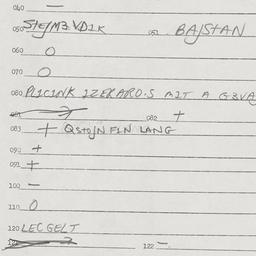 040 —
050 STEJMZ VDIK 051 BAJSTAN
060 O
070 O
080 PLICINK IZEKARO.S MIT A GBVA
081 082 +
083 + QSTOJN FIN LANG
090 +
091 +
100 —
110 O
120 LEC GELT
122 —